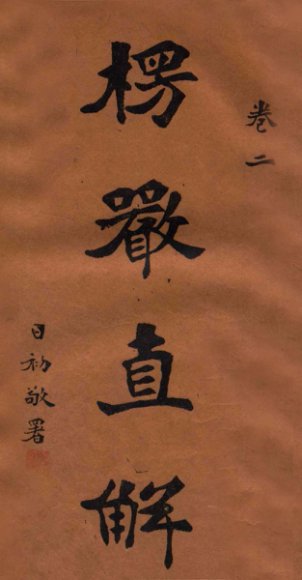 卷二
楞嚴直解
日初敬署